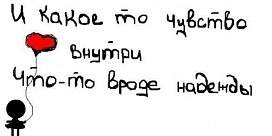 И какое то чувство
внутри
Что-то вроде надежды